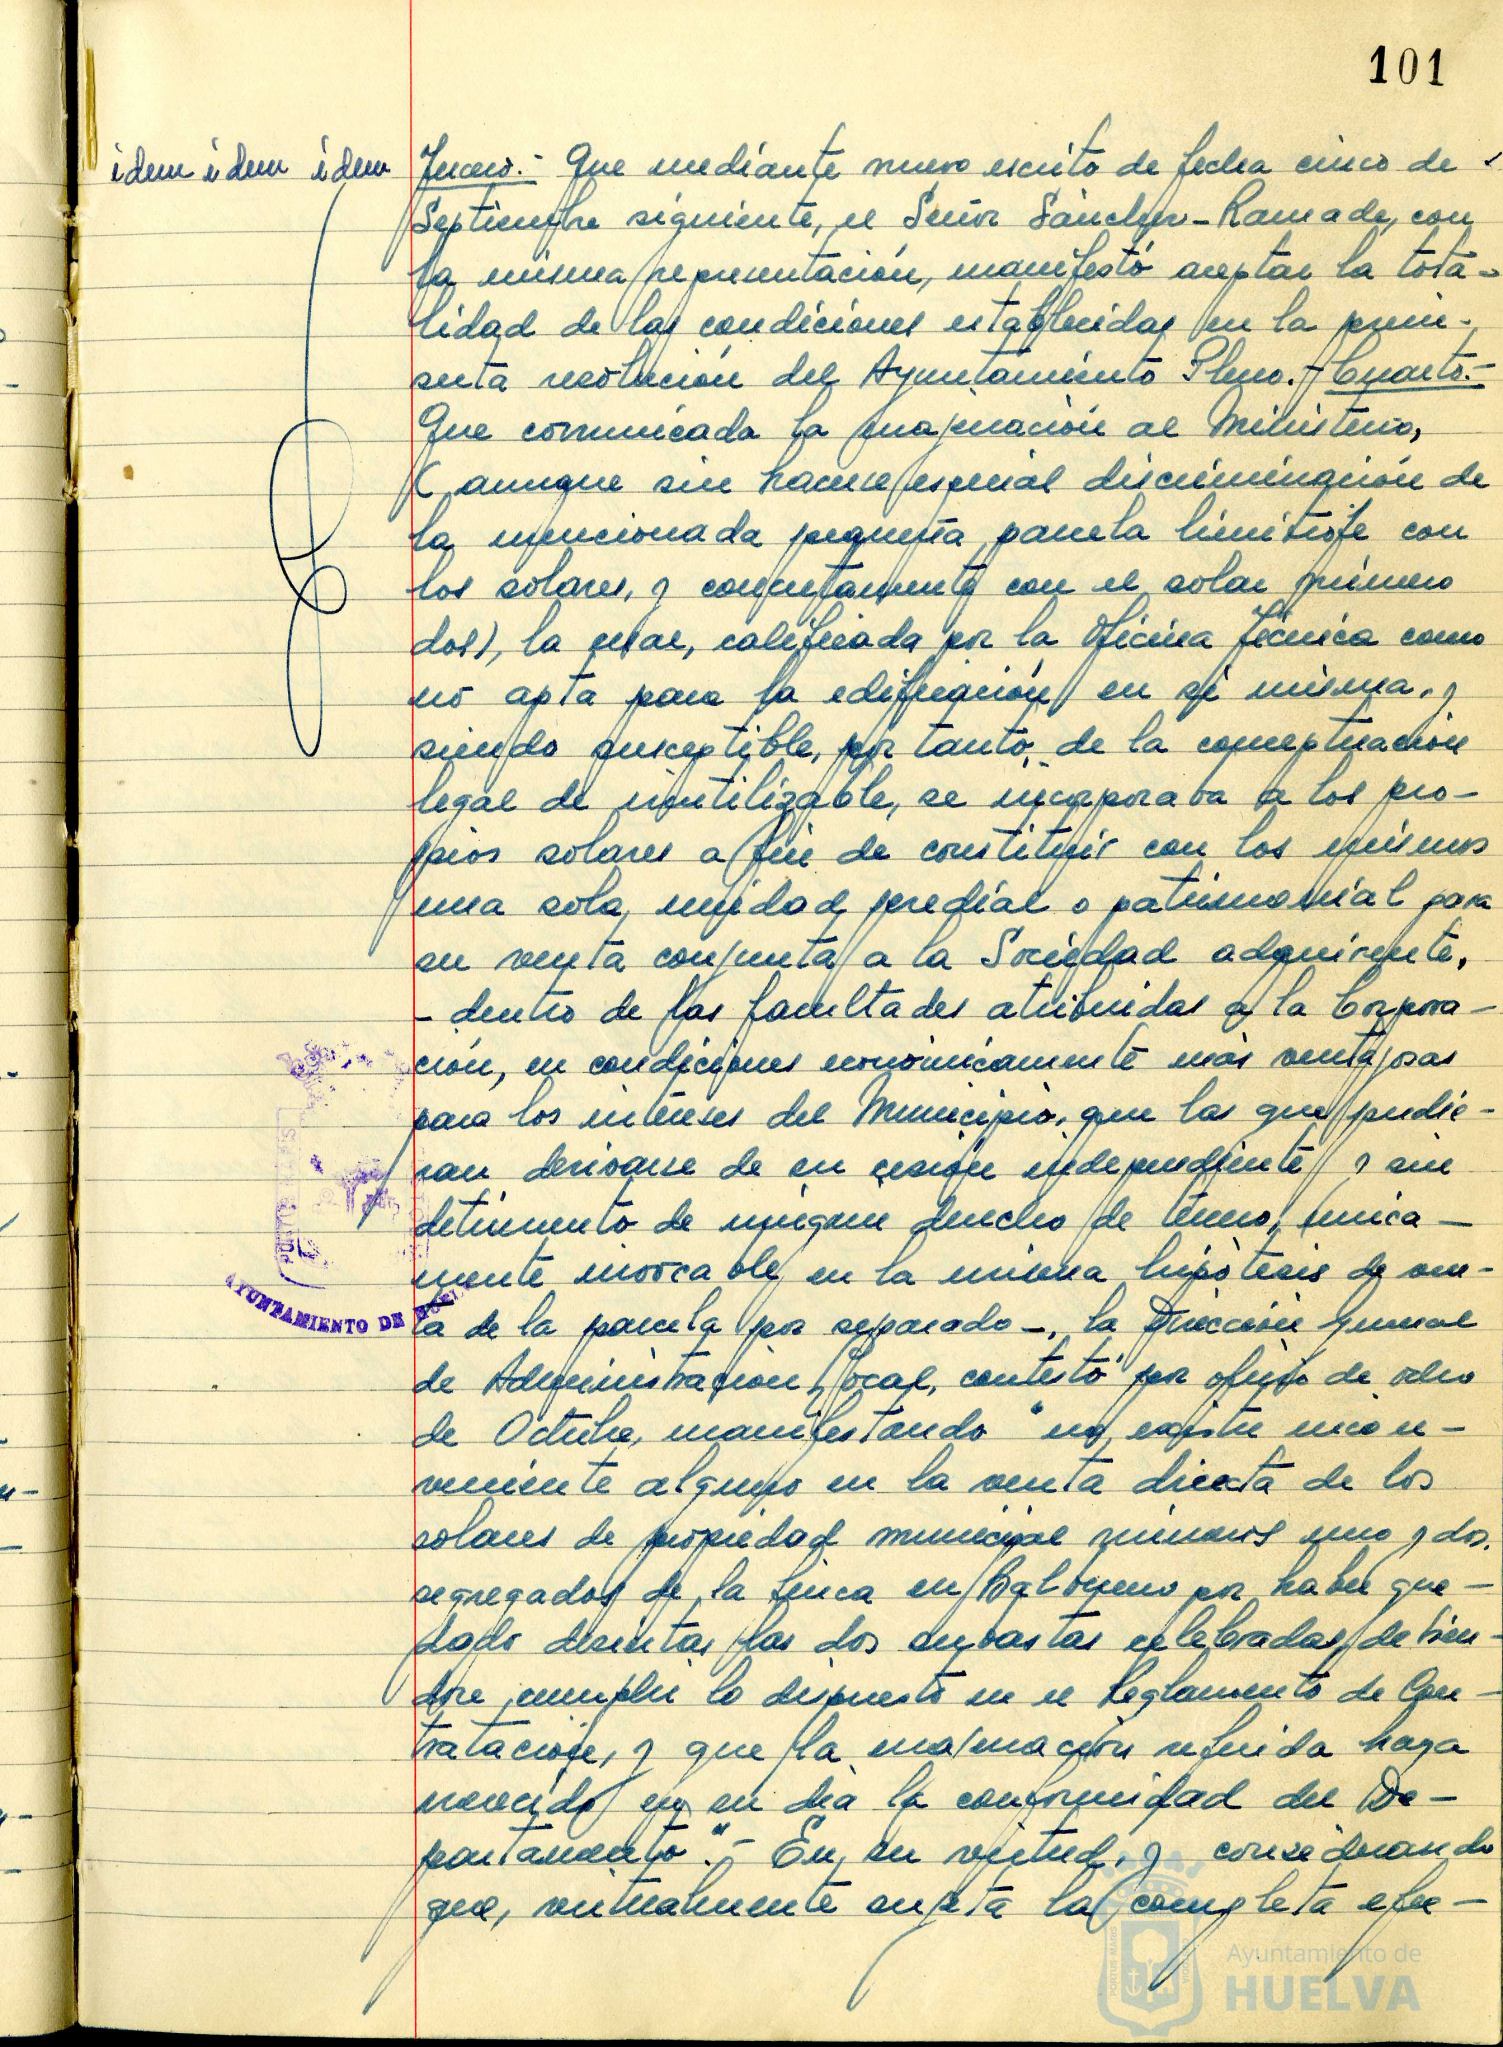 101
idem idem idem
Tercero.- Que mediante nuevo escrito de fecha cinco de
Septiembre siguiente, el Señor Sánchez-Ramade, con
la misma representación, manifestó aceptar la tota-
lidad de las condiciones establecidas en la prein-
serta resolución del Ayuntamiento Pleno.- Cuarto.-
Que comunicada la enajenación al Ministerio,
(aunque sin hacerse especial discriminación de
la mencionada pequeña parcela limítrofe con
los solares, y concretamente con el solar número
dos), la cual, calificada por la Oficina Técnica como
no apta para la edificación en sí misma, y
siendo susceptible, por tanto, de la conceptuación
legal de inutilizable, se incorporaba a los pro-
pios solares a fin de constituir con los mismos
una sola unidad predial o patrimonial para
su venta conjunta a la Sociedad adquirente,
- dentro de las facultades atribuidas a la Corpora-
ción, en condiciones económicamente más ventajosas
para los intereses del Municipio, que las que pudie-
ran derivarse de su cesión independiente y sin
detrimento de ningún derecho de tercero, única-
mente invocable en la misma hipótesis de ven-
ta de la parcela por separado-, la Dirección General
de Administración Local, contestó por oficio de ocho
de Octubre, manifestando "no existir incon-
veniente alguno en la venta directa de los
solares de propiedad municipal números uno y dos,
segregados de la finca en Balbueno por haber que-
dado desiertas las dos subastas celebradas, debién-
dose cumplir lo dispuesto en el Reglamento de Con-
tratación, y que la enajenación referida haya
merecido en su día la conformidad del De-
partamento".- En su virtud, y considerando
que, virtualmente sujeta la completa efec-
PORTUS MARIS
AYUNTAMIENTO DE HUELVA
Ayuntamiento de
HUELVA